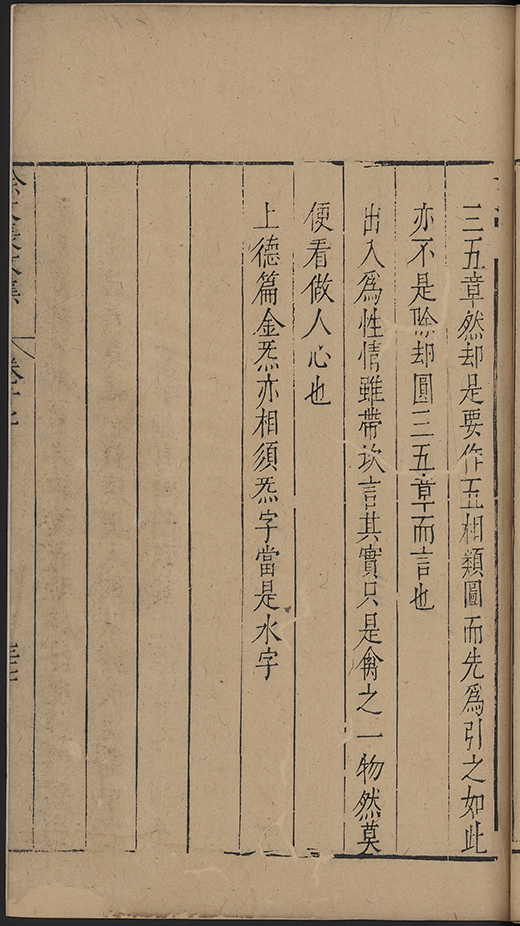 三五章然却是要作五相類圖而先爲引之如此
亦不是除却圓三五章而言也
出入爲性情雖帶坎言其實只是禽之一物然莫
便看做人心也
上德篇金炁亦相須炁字當是水字
徐文長文集
卷十七